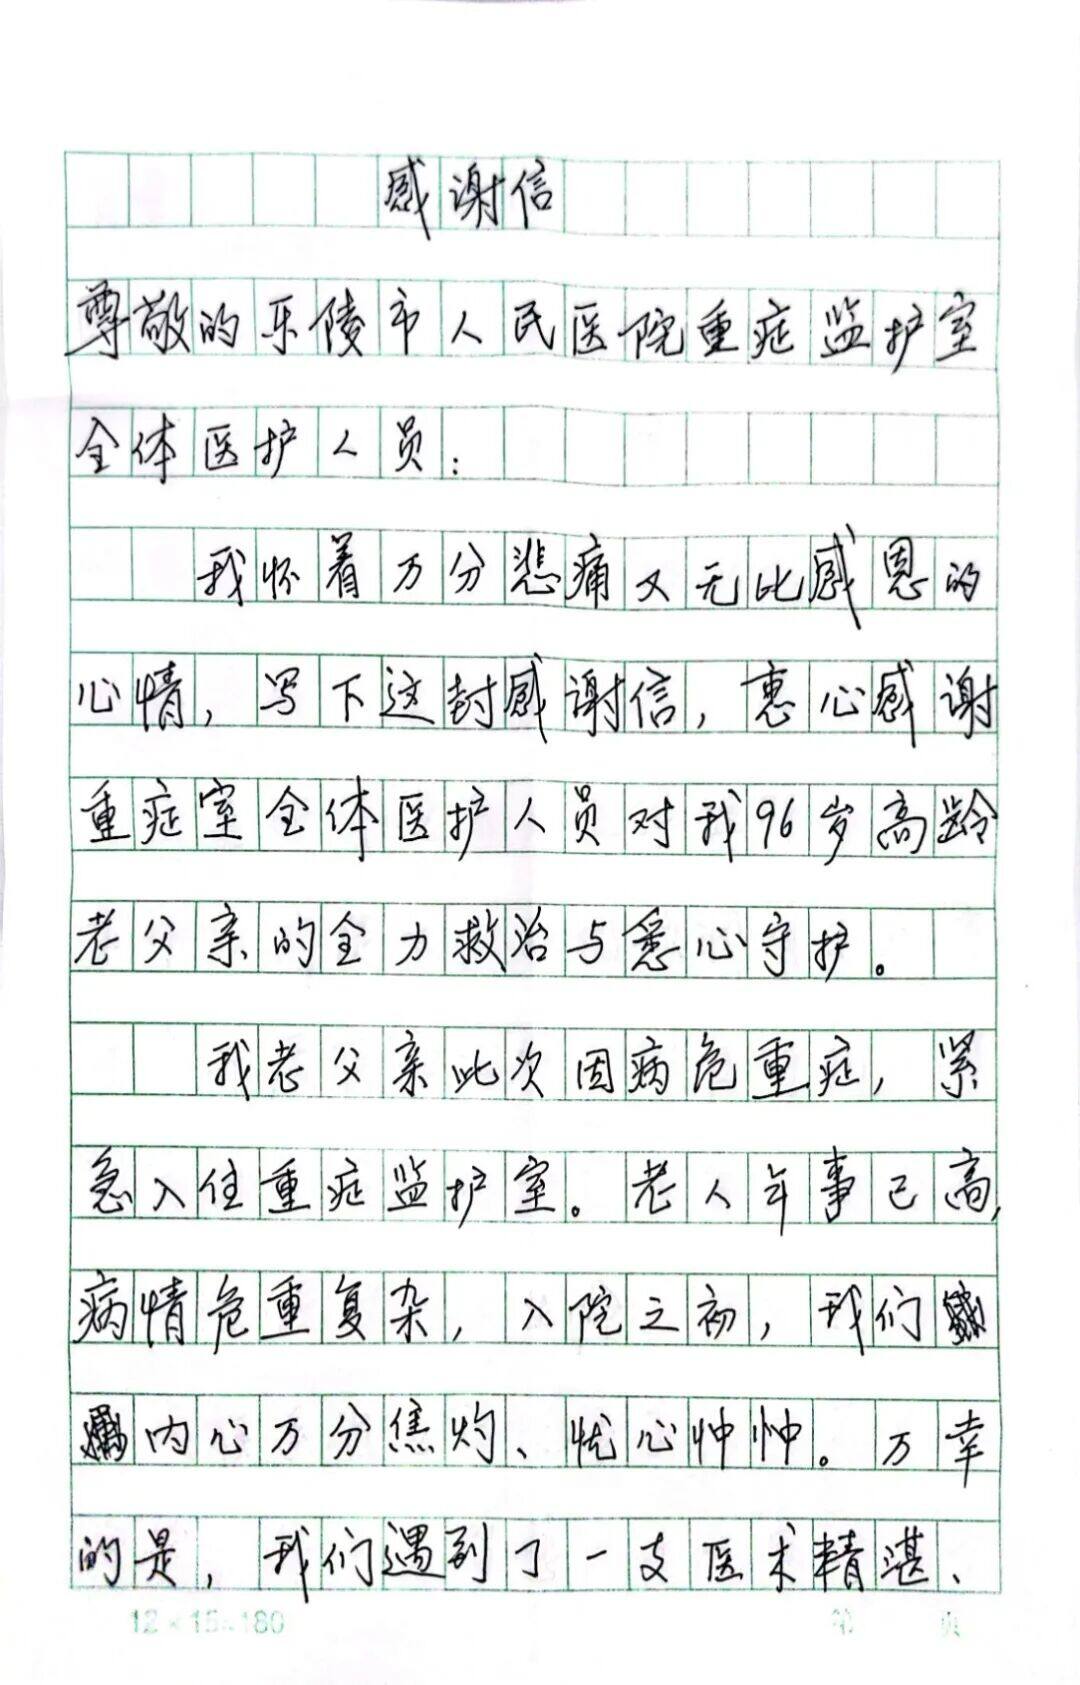 感谢信
尊敬的乐陵市人民医院重症监护室
全体医护人员：
我怀着万分悲痛又无比感恩的
心情，写下这封感谢信，衷心感谢
重症室全体医护人员对我96岁高龄
老父亲的全力救治与悉心守护。
我老父亲此次因病危重症，紧
急入住重症监护室。老人年事已高，
病情危重复杂，入院之初，我们
内心万分焦灼、忧心忡忡。万幸
的是，我们遇到了一支医术精湛、
12×15=180
第 页